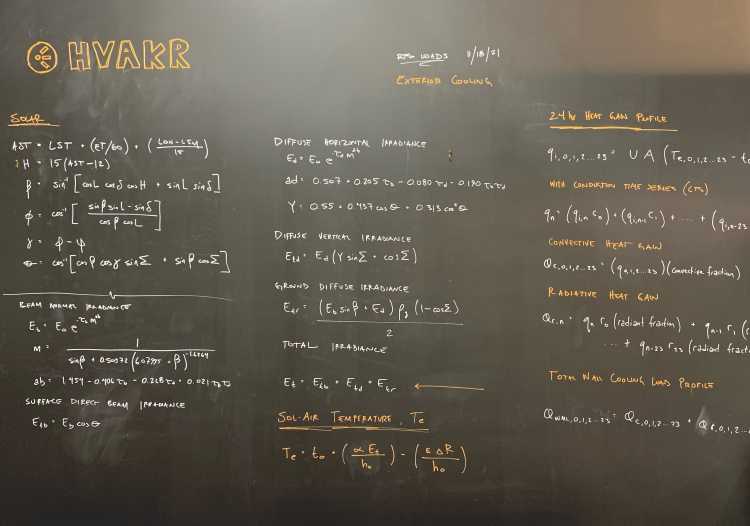 HVAKR
RTS LOADS 8/18/21
EXTERIOR COOLING
SOLAR
AST = LST + (ET/60) + (LON-LSM/15)
H = 15(AST-12)
β = sin⁻¹[cosL cosδ cosH + sinL sinδ]
φ = cos⁻¹[sinβ sinL - sinδ / cosβ cosL]
γ = φ - ψ
θ = cos⁻¹[cosβ cosγ sinΣ + sinβ cosΣ]
BEAM NORMAL IRRADIANCE
E_b = E_o e^(-τ_b m^ab)
m = 1 / sinβ + 0.50572(6.07995 + β)^-1.6364
ab = 1.454 - 0.406τ_b - 0.268τ_d + 0.021τ_bτ_d
SURFACE DIRECT BEAM IRRADIANCE
E_tb = E_b cosθ
DIFFUSE HORIZONTAL IRRADIANCE
E_d = E_o e^(-τ_d m^ad)
ad = 0.507 + 0.205τ_b - 0.080τ_d - 0.190τ_bτ_d
Y = 0.55 + 0.437cosθ + 0.313cos²θ
DIFFUSE VERTICAL IRRADIANCE
E_td = E_d(Y sinΣ + cosΣ)
GROUND DIFFUSE IRRADIANCE
E_tr = (E_b sinβ + E_d) ρ_g (1-cosΣ) / 2
TOTAL IRRADIANCE
E_t = E_tb + E_td + E_tr
SOL-AIR TEMPERATURE, Te
Te = t_o + (αE_t/h_o) - (εΔR/h_o)
24 hr HEAT GAIN PROFILE
q_i,0,1,2...23 = UA(Te,0,1,2...23 - t
WITH CONDUCTION TIME SERIES (CTS)
q_n = (q_i,n c_n) + (q_i,n-1 c_1) + ... + (q_i,n-23
CONVECTIVE HEAT GAIN
Q_c,0,1,2...23 = (q_n,1,2...23)(convective fraction)
RADIATIVE HEAT GAIN
Q_r,n = q_n r_0 (radiant fraction) + q_n-1 r_1 (
... + q_n-23 r_23 (radiant fract
TOTAL WALL COOLING LOAD PROFILE
Q_WALL,0,1,2...23 = Q_c,0,1,2...23 + Q_r,0,1,2...